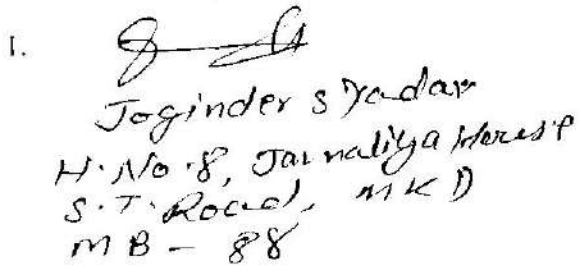 1.
Joginder S Yadav
H. No. 8, Jaunaliya House
S. T. Road, MKD
MB - 88